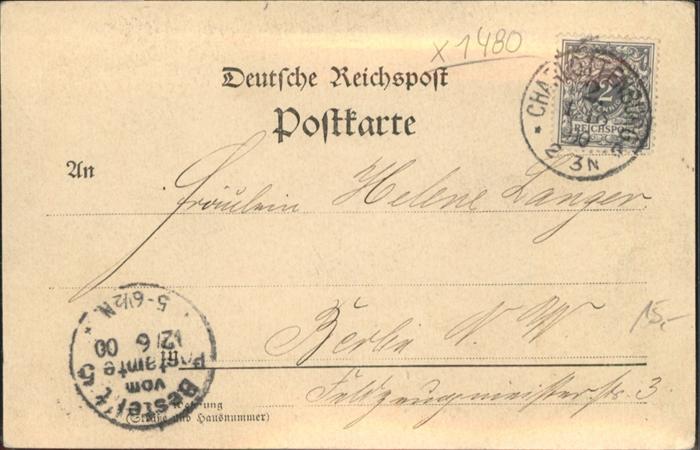 x 1480
Deutsche Reichspost
Postkarte
CHARLOTTENBURG
2
REICHSPOST
2-3N
An
Fräulein Helene Langer
15,-
Berlin N. W.
Feldzeugmeisterstr. 3.
Wohnung
(Straße und Hausnummer)
Bestellt
vom
Postamte 5
12/6 00
5-6½N.